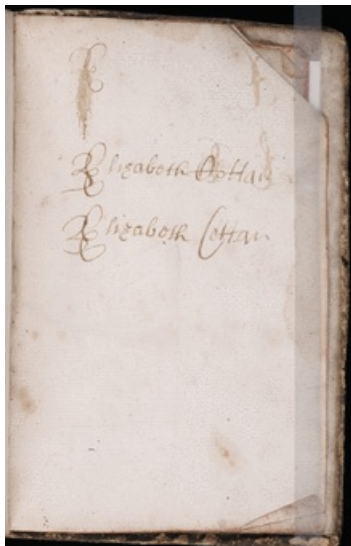 Elizabeth Cottan
Elizabeth Cottan